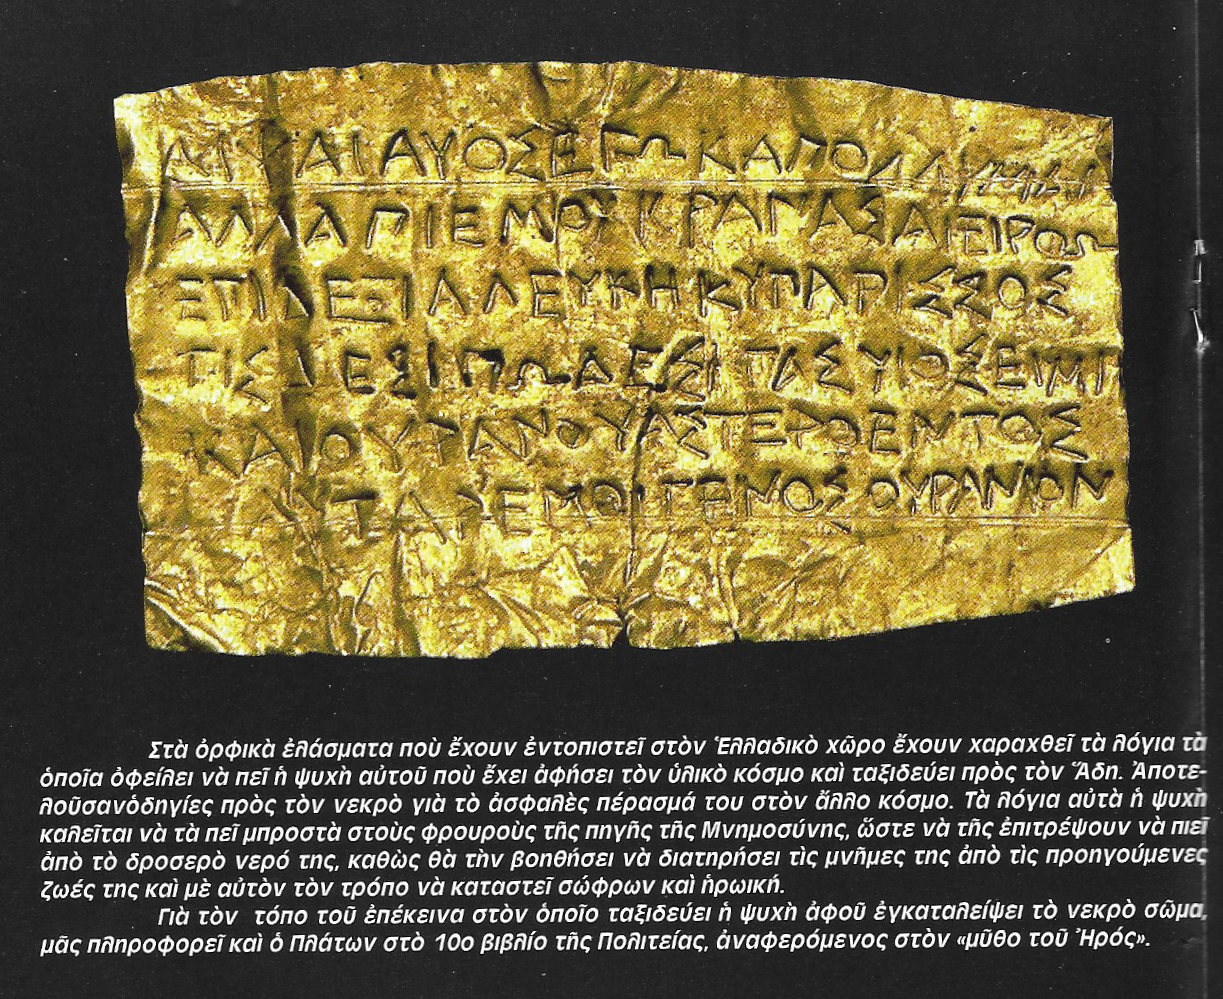 ΔΙΨΑΙΑΥΟΣΕΓΩΚΑΠΟΛΛΥΜΑΙ
ΑΛΛΑΠΙΕΜΟΥΚΡΑΝΑΣΑΙΕΙΡΟΩ
ΕΠΙΔΕΞΙΑΛΕΥΚΗΚΥΠΑΡΙΣΣΟΣ
ΤΙΣΔΕΣΙΠΩΔΕΣΙΓΑΣΥΙΟΣΕΙΜΙ
ΚΑΙΟΥΡΑΝΟΥΑΣΤΕΡΟΕΝΤΟΣ
ΑΥΤΑΡΕΜΟΙΓΕΝΟΣΟΥΡΑΝΙΟΝ
Στὰ ὀρφικὰ ἐλάσματα ποὺ ἔχουν ἐντοπιστεῖ στὸν Ἑλλαδικὸ χῶρο ἔχουν χαραχθεῖ τὰ λόγια τὰ
ὁποῖα ὀφείλει νὰ πεῖ ἡ ψυχὴ αὐτοῦ ποὺ ἔχει ἀφήσει τὸν ὑλικὸ κόσμο καὶ ταξιδεύει πρὸς τὸν Ἅδη. Ἀποτε-
λοῦσανὁδηγίες πρὸς τὸν νεκρὸ γιὰ τὸ ἀσφαλὲς πέρασμά του στὸν ἄλλο κόσμο. Τὰ λόγια αὐτὰ ἡ ψυχὴ
καλεῖται νὰ τὰ πεῖ μπροστὰ στοὺς φρουροὺς τῆς πηγῆς τῆς Μνημοσύνης, ὥστε νὰ τῆς ἐπιτρέψουν νὰ πιεῖ
ἀπὸ τὸ δροσερὸ νερό της, καθὼς θὰ τὴν βοηθήσει νὰ διατηρήσει τὶς μνῆμες της ἀπὸ τὶς προηγούμενες
ζωές της καὶ μὲ αὐτὸν τὸν τρόπο νὰ καταστεῖ σώφρων καὶ ἡρωική.
Γιὰ τὸν τόπο τοῦ ἐπέκεινα στὸν ὁποῖο ταξιδεύει ἡ ψυχὴ ἀφοῦ ἐγκαταλείψει τὸ νεκρὸ σῶμα,
μᾶς πληροφορεῖ καὶ ὁ Πλάτων στὸ 10ο βιβλίο τῆς Πολιτείας, ἀναφερόμενος στὸν «μῦθο τοῦ Ἠρός».